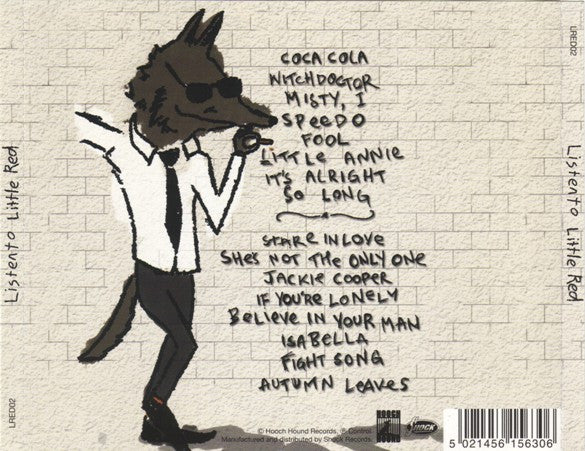 COCA COLA
WITCHDOCTOR
MISTY, I
SPEEDO
FOOL
LITTLE ANNIE
IT'S ALRIGHT
SO LONG
STARE IN LOVE
SHE'S NOT THE ONLY ONE
JACKIE COOPER
IF YOU'RE LONELY
BELIEVE IN YOUR MAN
ISABELLA
FIGHT SONG
AUTUMN LEAVES
Listen to Little Red
LRED02
LRED02
Listen to Little Red
© Hooch Hound Records, ℗ Control.
Manufactured and distributed by Shock Records.
HOOCH
HOUND
SHOCK
5 021456 156306